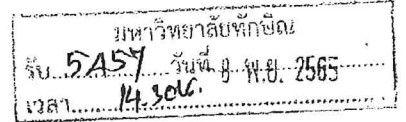 มหาวิทยาลัยทักษิณ
รับ 5457 วันที่ 9 พ.ย. 2565
เวลา 14.30น.